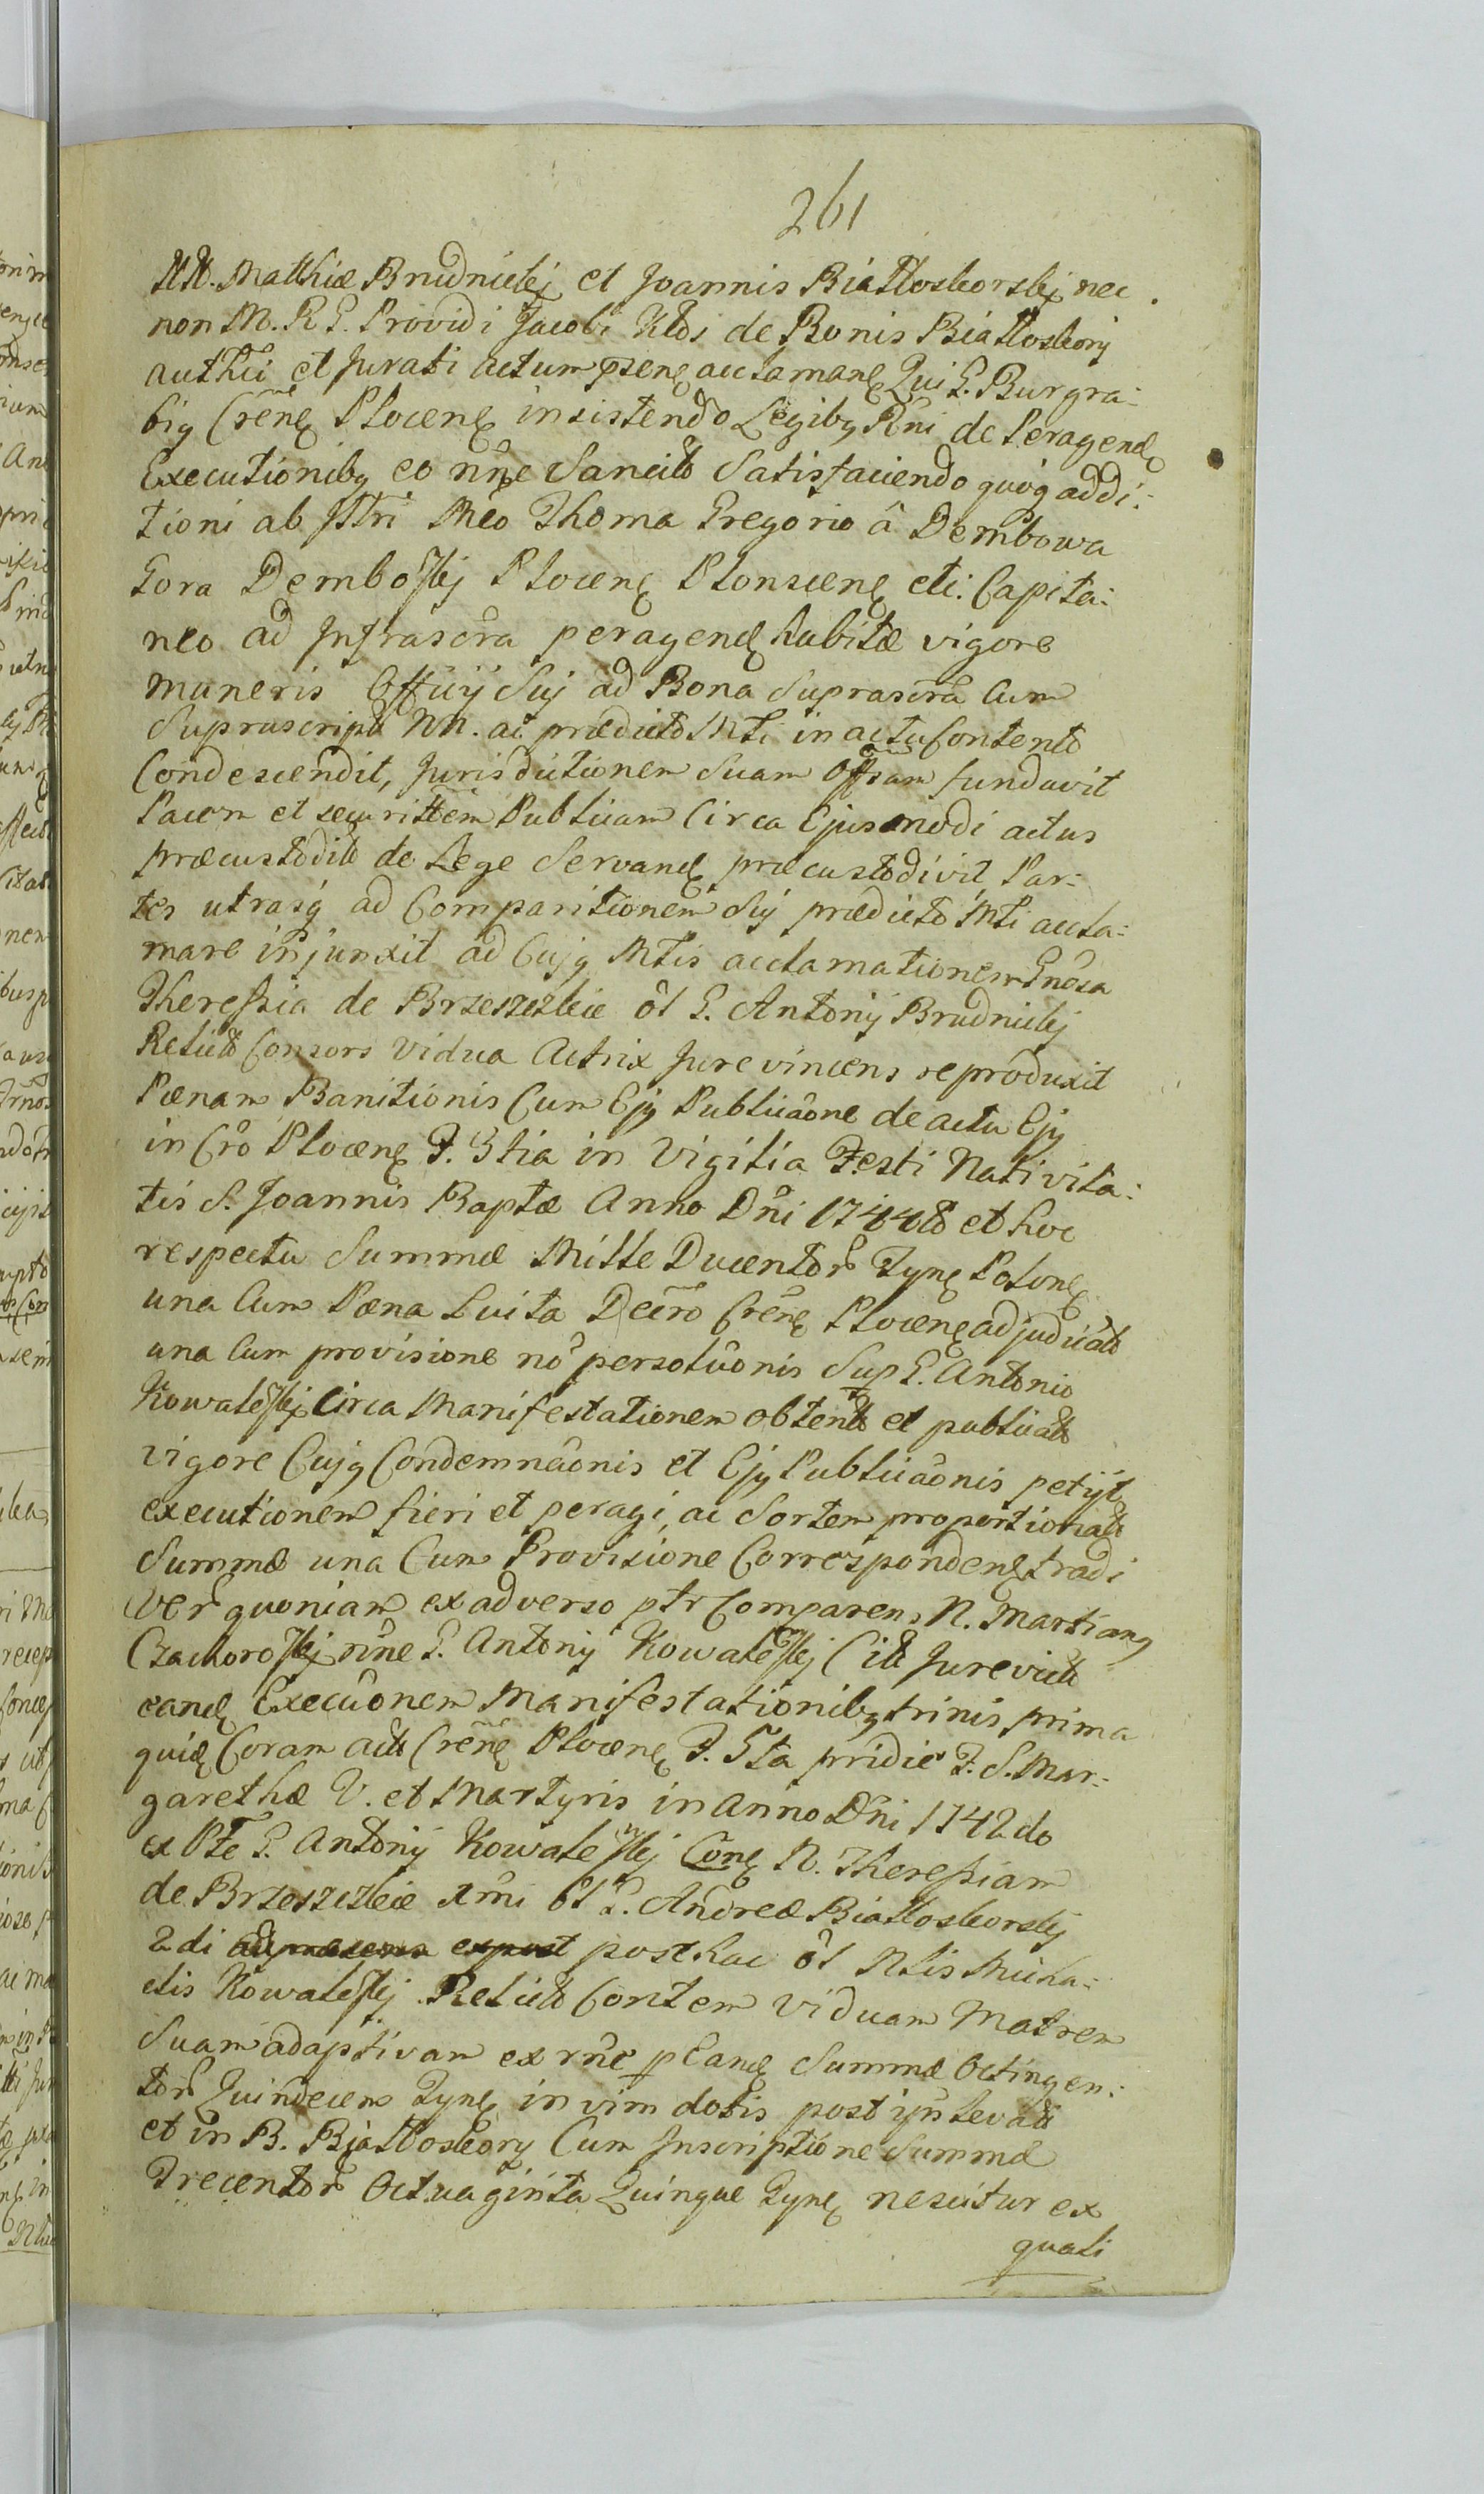 261
NN. Matthiæ Brudnickj et Joannis Białłoskorskj nec
non M. R G. Providi Jacobi Kłos de Bonis Białłoskory
authci et Jurati actum pseñ acclamañ Qui G. Burgra-
big Creñ Ploceñ insistendo Legibg Rñi de Peragend
Executionibg eo nñe Sancitt Satisfaciendo quog addi-
tioni ab Jltri Mco Thoma Gregorio â Dembowa
Gora Demboskj Ploceñ Plonsceñ etc: Capita-
neo ad Infrascra peragend habitæ vigore
muneris Officij Suj ad Bona Suprascra Cum
Suprascript NN. ac prædicto Mti in actu Contento
Condescendit, Jurisdictionem Suam Offsam fundavit
Pacem et securittem Publicam Circa Ejusmodi actus
præcustodit de Lege Servand præcustodivit Par-
tes utrasq ad Comparitionem Suj prædicto Mti accla-
mare injunxit ad Cujg Mtis acclamationem Gnosa
Theressia de Brzeszczkie ol G. Antonij Brudnickj
Relict Consors Vidua Actrix Jure vincens reproduxit
Pœnam Banitionis Cum Ejg Publicaone de actu Ejg
in Cro Ploceñ F. 3tia in Vigilia Festi Nativita-
tis S. Joannis Baptæ Anno Dñi 1744to et hoc
respectu Summæ Mille Ducentor Tyñ Poloñ
una Cum Pœna Luita Decro Creñ Ploceñ adjudicatt
una Cum provisione no persoluonis Sup G. Antonio
Kowaleskj Circa Manifestationem obtentt et publicatt
vigore Cujg Condemnaonis et Ejg Publicaonis petijt
executionem fieri et peragi, ac Sortem proportionatt
Summæ una Cum Provisione Correspondeñ tradi
Ver quoniam ex adverso ptr Comparens N. Martiang
Czachoroskj nñe G. Antonij Kowaleskj Citt Jurevictt
eand Execuonem Manifestationibg trinis prima
quid Coram actt Creñ Ploceñ F. 5ta pridie F. S. Mar-
garethæ V. et Martyris in Anno Dñi 1742do
ex Pte G. Antonij Kowaleskj Coñ N. Theressiam
de Brzeszczkie 1mi ol G. Andreæ Białłoskorskj
2di post hac ol Nlis Micha-
elis Kowaleskj Relictt Contem Viduam Matrem
Suam adoptivam ex rñe p Eand Summæ Octingen-
tor Quindecem Tyñ in vim dotis post ijs levatt
et in B. Białłoskory Cum Inscriptione Summæ
Trecentor Octuaginta Quinque Tyñ nescitur ex
quali